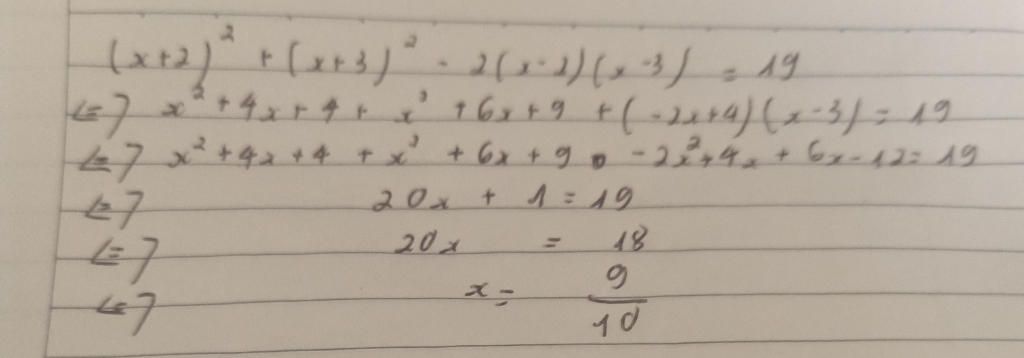 (x+2)² + (x+3)² - 2(x-2)(x-3) = 19
<=> x² + 4x + 4 + x² + 6x + 9 + (-2x+4)(x-3) = 19
<=> x² + 4x + 4 + x² + 6x + 9 - 2x² + 4x + 6x - 12 = 19
<=> 20x + 1 = 19
<=> 20x = 18
<=> x = 9/10